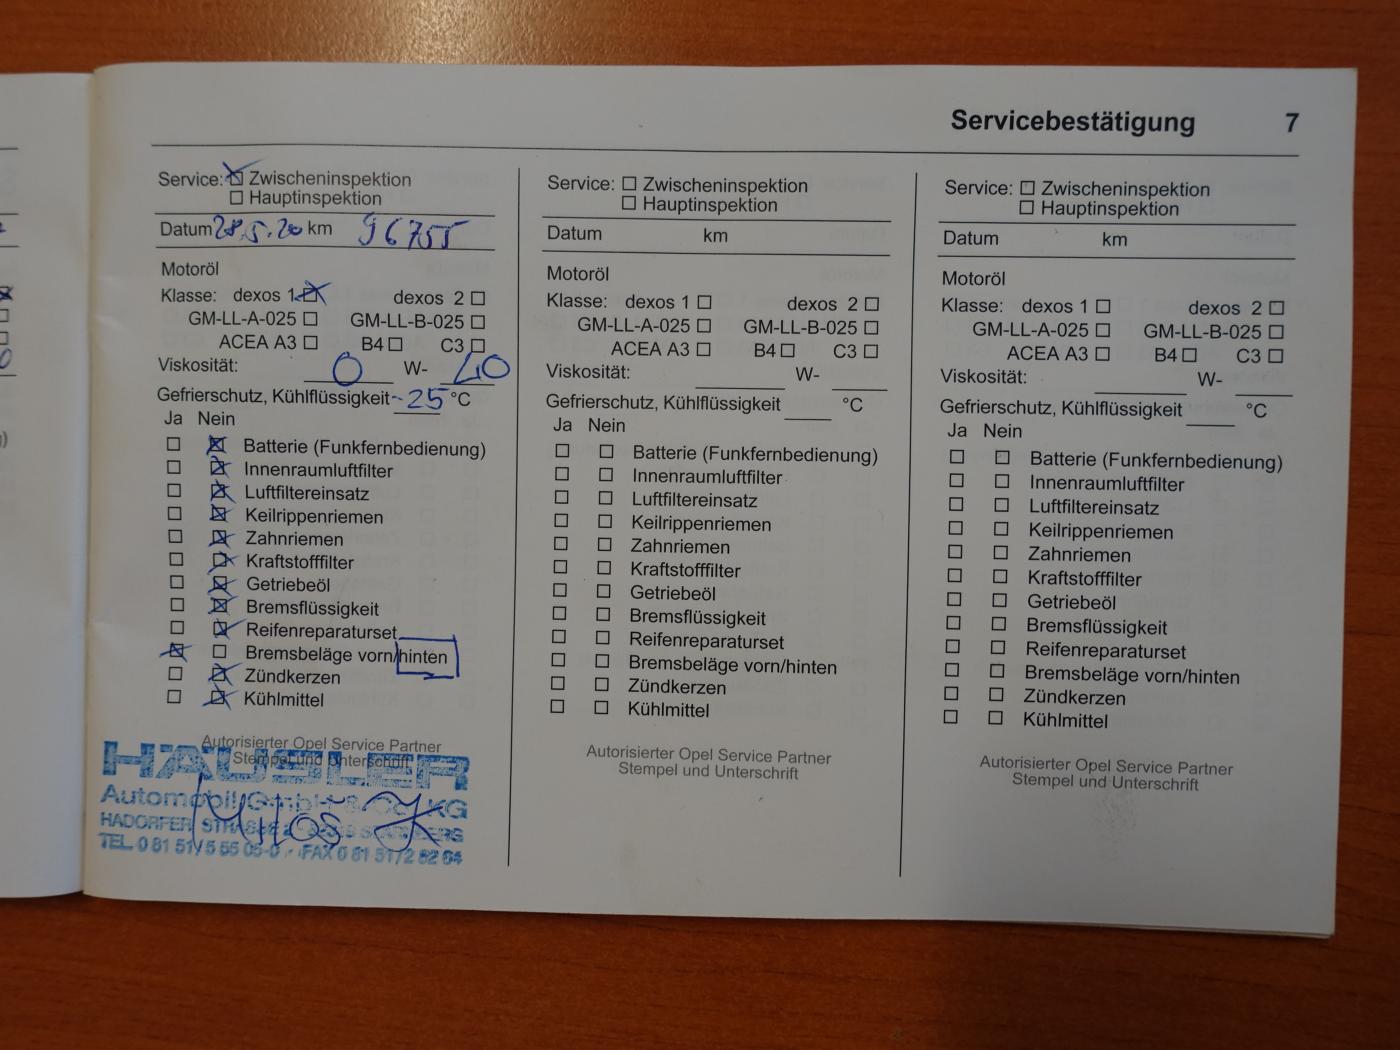 Servicebestätigung 7
Service: Zwischeninspektion
Hauptinspektion
Datum 28.5.20 km 96755
Motoröl
Klasse: dexos 1 dexos 2
GM-LL-A-025 GM-LL-B-025
ACEA A3 B4 C3
Viskosität: 0 W- 40
Gefrierschutz, Kühlflüssigkeit -25 °C
Ja Nein
Batterie (Funkfernbedienung)
Innenraumluftfilter
Luftfiltereinsatz
Keilrippenriemen
Zahnriemen
Kraftstofffilter
Getriebeöl
Bremsflüssigkeit
Reifenreparaturset
Bremsbeläge vorn/hinten
Zündkerzen
Kühlmittel
Autorisierter Opel Service Partner
Stempel und Unterschrift
HÄUSLER
Automobil GmbH & Co. KG
HADORFER STRASSE
TEL. 0 81 51/5 55 05-0 FAX 0 81 51/2 82 64
Service: Zwischeninspektion
Hauptinspektion
Datum km
Motoröl
Klasse: dexos 1 dexos 2
GM-LL-A-025 GM-LL-B-025
ACEA A3 B4 C3
Viskosität: W-
Gefrierschutz, Kühlflüssigkeit °C
Ja Nein
Batterie (Funkfernbedienung)
Innenraumluftfilter
Luftfiltereinsatz
Keilrippenriemen
Zahnriemen
Kraftstofffilter
Getriebeöl
Bremsflüssigkeit
Reifenreparaturset
Bremsbeläge vorn/hinten
Zündkerzen
Kühlmittel
Autorisierter Opel Service Partner
Stempel und Unterschrift
Service: Zwischeninspektion
Hauptinspektion
Datum km
Motoröl
Klasse: dexos 1 dexos 2
GM-LL-A-025 GM-LL-B-025
ACEA A3 B4 C3
Viskosität: W-
Gefrierschutz, Kühlflüssigkeit °C
Ja Nein
Batterie (Funkfernbedienung)
Innenraumluftfilter
Luftfiltereinsatz
Keilrippenriemen
Zahnriemen
Kraftstofffilter
Getriebeöl
Bremsflüssigkeit
Reifenreparaturset
Bremsbeläge vorn/hinten
Zündkerzen
Kühlmittel
Autorisierter Opel Service Partner
Stempel und Unterschrift